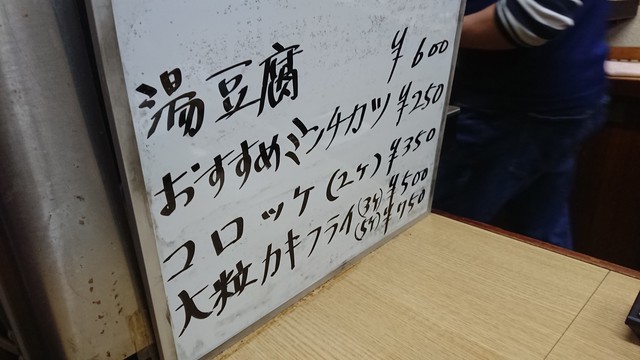 湯豆腐 ¥600
おすすめミンチカツ ¥250
コロッケ(2ケ) ¥350
大粒カキフライ(3ケ) ¥500
(5ケ) ¥750